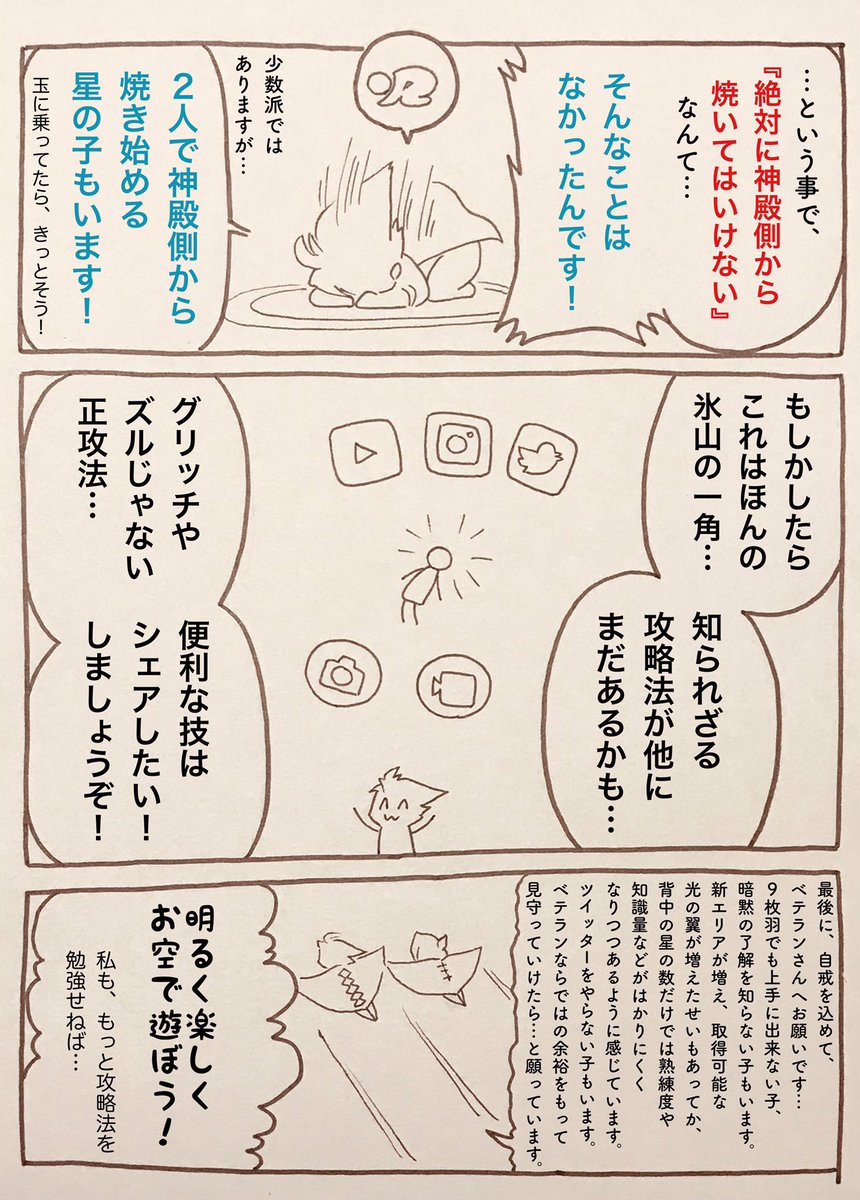 …という事で、
『絶対に神殿側から
焼いてはいけない』
なんて…
そんなことは
なかったんです！
少数派では
ありますが…
２人で神殿側から
焼き始める
星の子もいます！
玉に乗ってたら、きっとそう！
もしかしたら
これはほんの
氷山の一角…
知られざる
攻略法が他に
まだあるかも…
グリッチや
ズルじゃない
正攻法…
便利な技は
シェアしたい！
しましょうぞ！
最後に、自戒を込めて、
ベテランさんへお願いです…
９枚羽でも上手に出来ない子、
暗黙の了解を知らない子もいます。
新エリアが増え、取得可能な
光の翼が増えたせいもあってか、
背中の星の数だけでは熟練度や
知識量などがはかりにくく
なりつつあるように感じています。
ツイッターをやらない子もいます。
ベテランならではの余裕をもって
見守っていけたら…と願っています。
明るく楽しく
お空で遊ぼう！
私も、もっと攻略法を
勉強せねば…